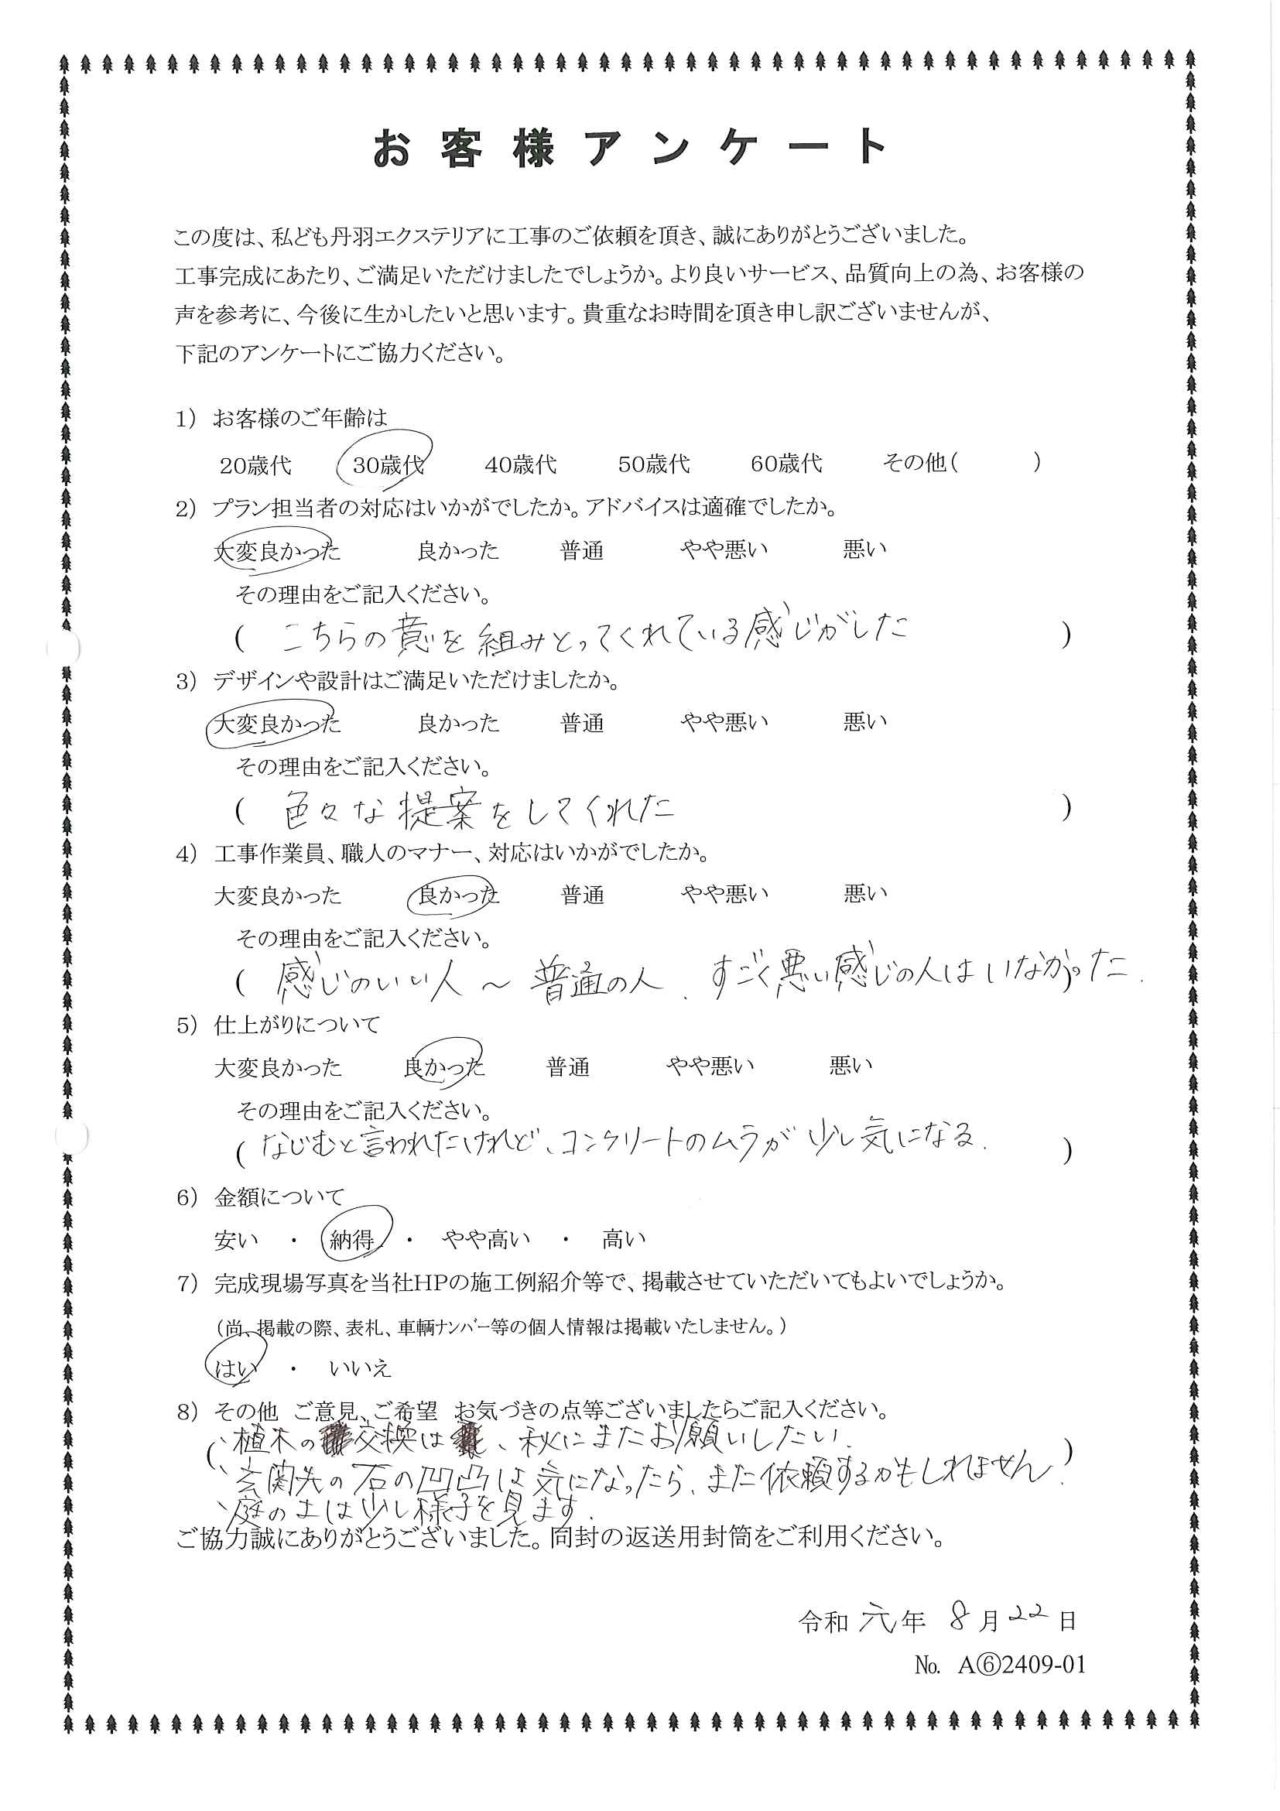 お客様アンケート
この度は、私ども丹羽エクステリアに工事のご依頼を頂き、誠にありがとうございました。
工事完成にあたり、ご満足いただけましたでしょうか。より良いサービス、品質向上の為、お客様の
声を参考に、今後に生かしたいと思います。貴重なお時間を頂き申し訳ございませんが、
下記のアンケートにご協力ください。
1) お客様のご年齢は
20歳代 30歳代 40歳代 50歳代 60歳代 その他( )
2) プラン担当者の対応はいかがでしたか。アドバイスは適確でしたか。
大変良かった 良かった 普通 やや悪い 悪い
その理由をご記入ください。
( こちらの意を組みとってくれている感じがした )
3) デザインや設計はご満足いただけましたか。
大変良かった 良かった 普通 やや悪い 悪い
その理由をご記入ください。
( 色々な提案をしてくれた )
4) 工事作業員、職人のマナー、対応はいかがでしたか。
大変良かった 良かった 普通 やや悪い 悪い
その理由をご記入ください。
( 感じのいい人~普通の人、すごく悪い感じの人はいなかった. )
5) 仕上がりについて
大変良かった 良かった 普通 やや悪い 悪い
その理由をご記入ください。
( なじむと言われたけれど、コンクリートのムラが少し気になる. )
6) 金額について
安い ・ 納得 ・ やや高い ・ 高い
7) 完成現場写真を当社HPの施工例紹介等で、掲載させていただいてもよいでしょうか。
(尚、掲載の際、表札、車輌ナンバー等の個人情報は掲載いたしません。)
はい ・ いいえ
8) その他 ご意見、ご希望 お気づきの点等ございましたらご記入ください。
( 、植木の交換は、秋にまたお願いしたい.
、玄関先の石の凹凸は気になったら、また依頼するかもしれません. )
、庭の土は少し様子を見ます.
ご協力誠にありがとうございました。同封の返送用封筒をご利用ください。
令和 元年 8月22日
No. A⑥2409-01